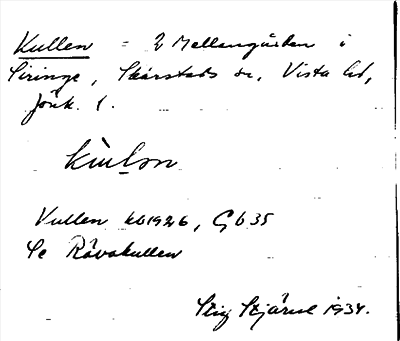 Kullen = 2 Mellangården i
Siringe, Skärstads sn, Vista hd,
Jönk. l.
kùlₒn
Kullen kb1926, Gb 35
Se Rävakullen
Stig Stjärne 1934.